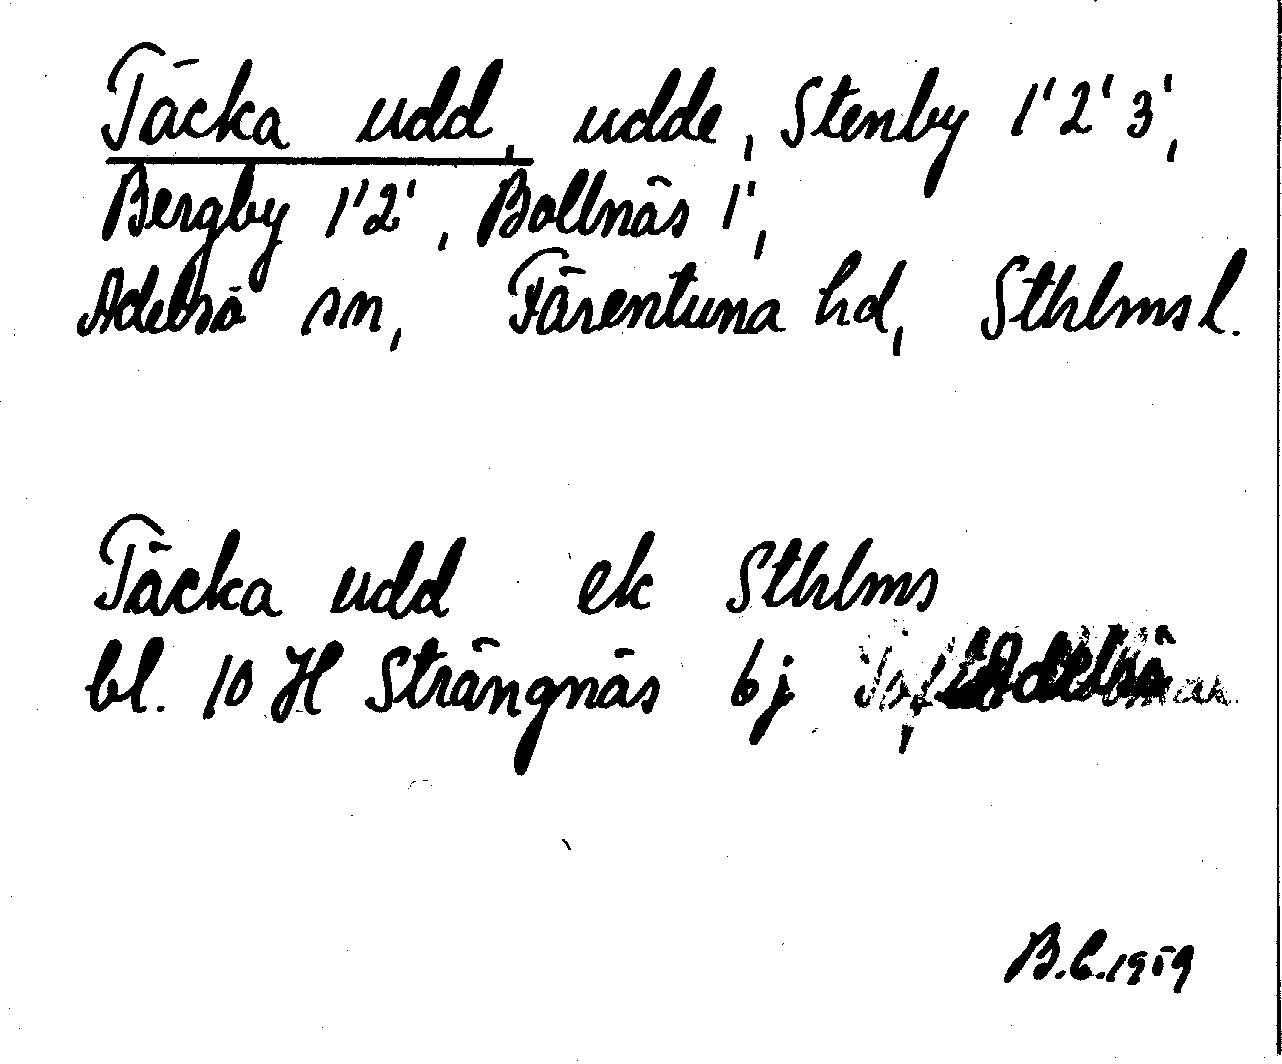 Täcka udd, udde, Stenby 1' 2' 3',
Bergby 1' 2', Bollnäs 1',
Adelsö sn, Färentuna hd, Sthlms l.
Täcka udd ek Sthlms
bl. 10 H Strängnäs 6j Adelsö
B.C. 1959